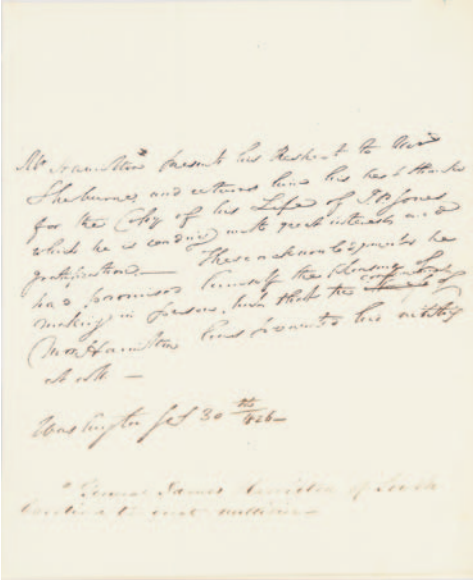 Mr Hamilton presents his Respect to
Sherburne, and returns him his best thanks
for the Copy of his Life of J P Jones
which he is reading with great interest and
gratification — These acknowledgements he
had promised himself the pleasure of
making in person, but that the confinement of
Mrs Hamilton has prevented his visiting
at all —
Washington 30th 1826 —
James Hamilton of South
Carolina